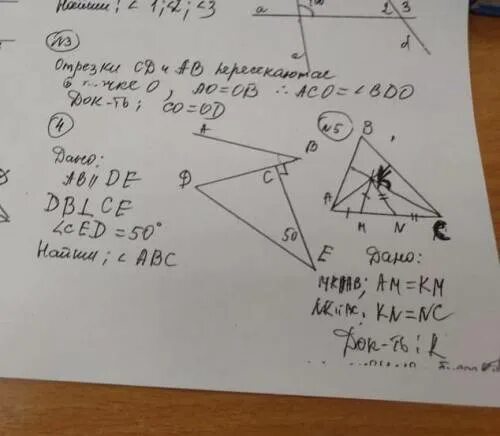 Найти; ∠1; ∠2; ∠3
a
c
2 3
d
N3
Отрезки CD и AB пересекаются
в O, AO=OB ∠ACO=∠BDO
Док-ть; CO=OD
4
Дано:
AB ∥ DE
DB⊥CE
∠CED=50°
Найти; ∠ABC
A
B
C
D
50
E
N5
B
K
A
M
N
C
Дано:
AM=KM
KN=NC
Док-ть: